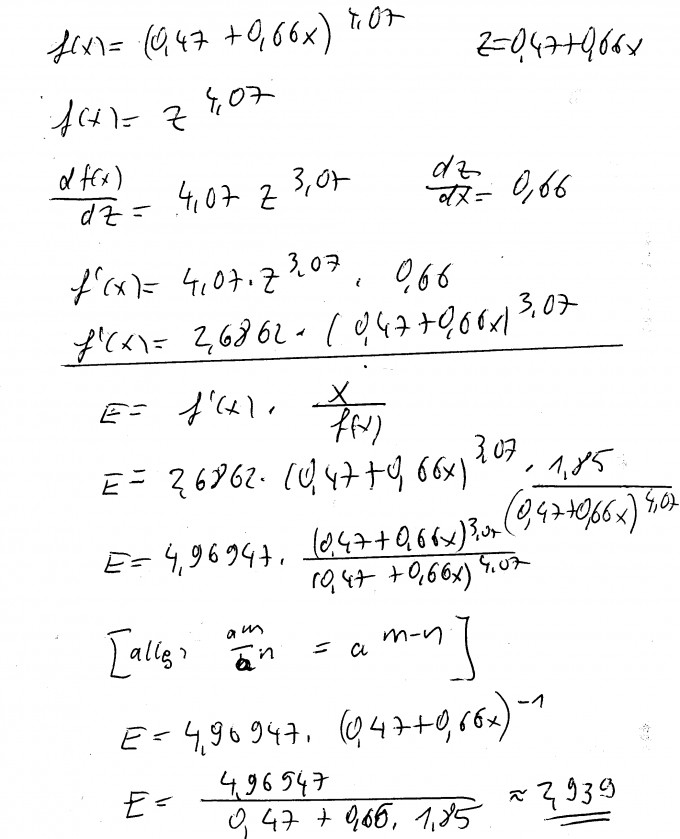 f(x)= (0,47 +0,66x)^4,07    z=0,47+0,66x
f(x)= z^4,07
df(x)/dz = 4,07 z^3,07    dz/dx = 0,66
f'(x)= 4,07·z^3,07 · 0,66
f'(x)= 2,6862 · (0,47+0,66x)^3,07
E= f'(x) · x/f(x)
E= 2,6862· (0,47+0,66x)^3,07 · 1,85/(0,47+0,66x)^4,07
E= 4,96947· (0,47+0,66x)^3,07/(0,47+0,66x)^4,07
[allg, a^m/a^n = a^m-n]
E= 4,96947· (0,47+0,66x)^-1
E= 4,96547/0,47 + 0,66· 1,85 ≈ 2,939